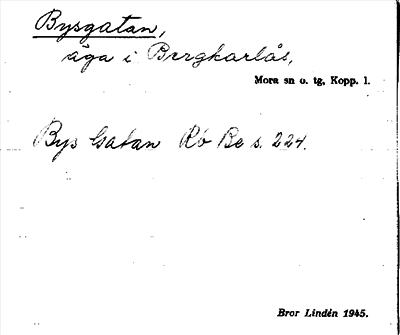 Bysgatan,
äga i Bergkarlås,
Mora sn o. tg, Kopp. l.
Bys Gatan Rö Be s. 224.
Bror Lindén 1945.